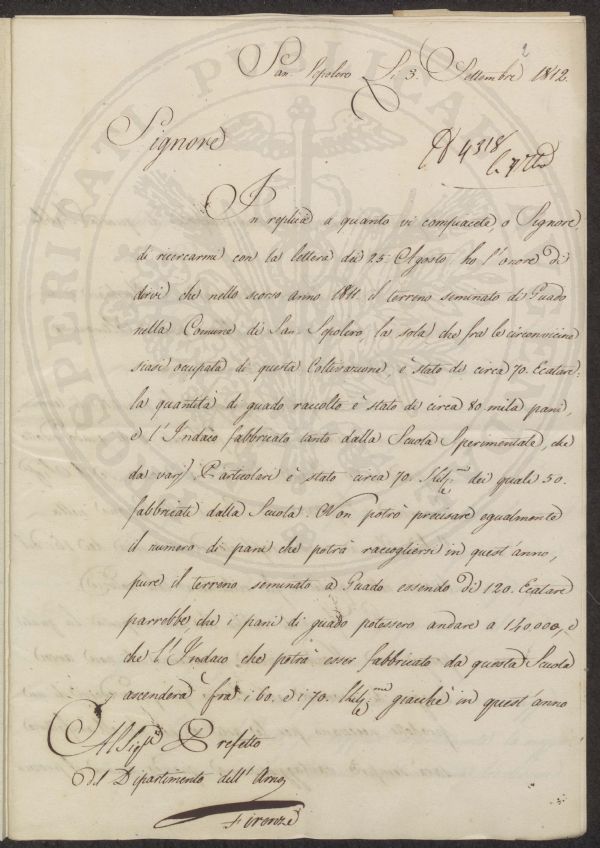 2
San Sepolcro Li 3. Settembre 1812.
Signore
N 4318
In replica a quanto vi compiacete o Signore
di ricercarmi con la lettera dei 25. Agosto, ho l'onore di
dirvi che nello scorso anno 1811 il terreno seminato di Guado
nella Comune di San Sepolcro, la sola che fra le circonvicine
siasi occupata di questa Coltivazione è stato di circa 70. Ecatare:
la quantità di guado raccolto è stato di circa 80. mila pani,
e l'Indaco fabbricato tanto dalla Scuola Sperimentale, che
da varj Particolari è stato circa 70. Kil. dei quali 50.
fabbricati dalla Scuola. Non potrò precisare egualmente
il numero di pani che potrà raccogliersi in quest'anno,
pure il terreno seminato a Guado essendo di 120. Ecatare
parrebbe, che i pani di guado potessero andare a 140,000, e
che l'Indaco che potrà esser fabbricato da questa Scuola
ascenderà fra i 60. e i 70. Kil. giacchè in quest'anno
Al Sig. Prefetto
del Dipartimento dell'Arno
Firenze
PROSPERITATI PUBLICAE